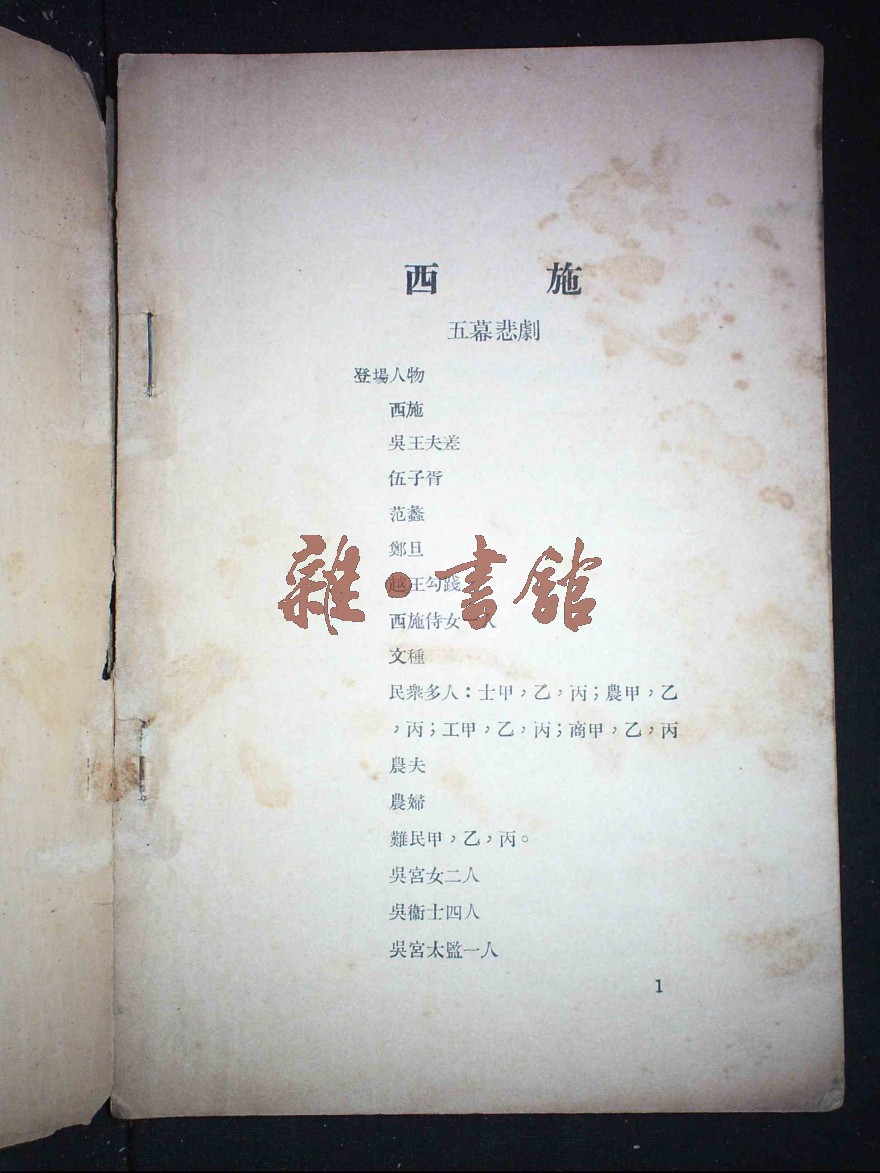 西 施
五幕悲劇
登場人物
西施
吳王夫差
伍子胥
范蠡
鄭旦
越王勾踐
西施侍女一人
文種
民衆多人：士甲，乙，丙；農甲，乙
，丙；工甲，乙，丙；商甲，乙，丙
農夫
農婦
難民甲，乙，丙。
吳宮女二人
吳衞士四人
吳宮太監一人
1
雜·書館